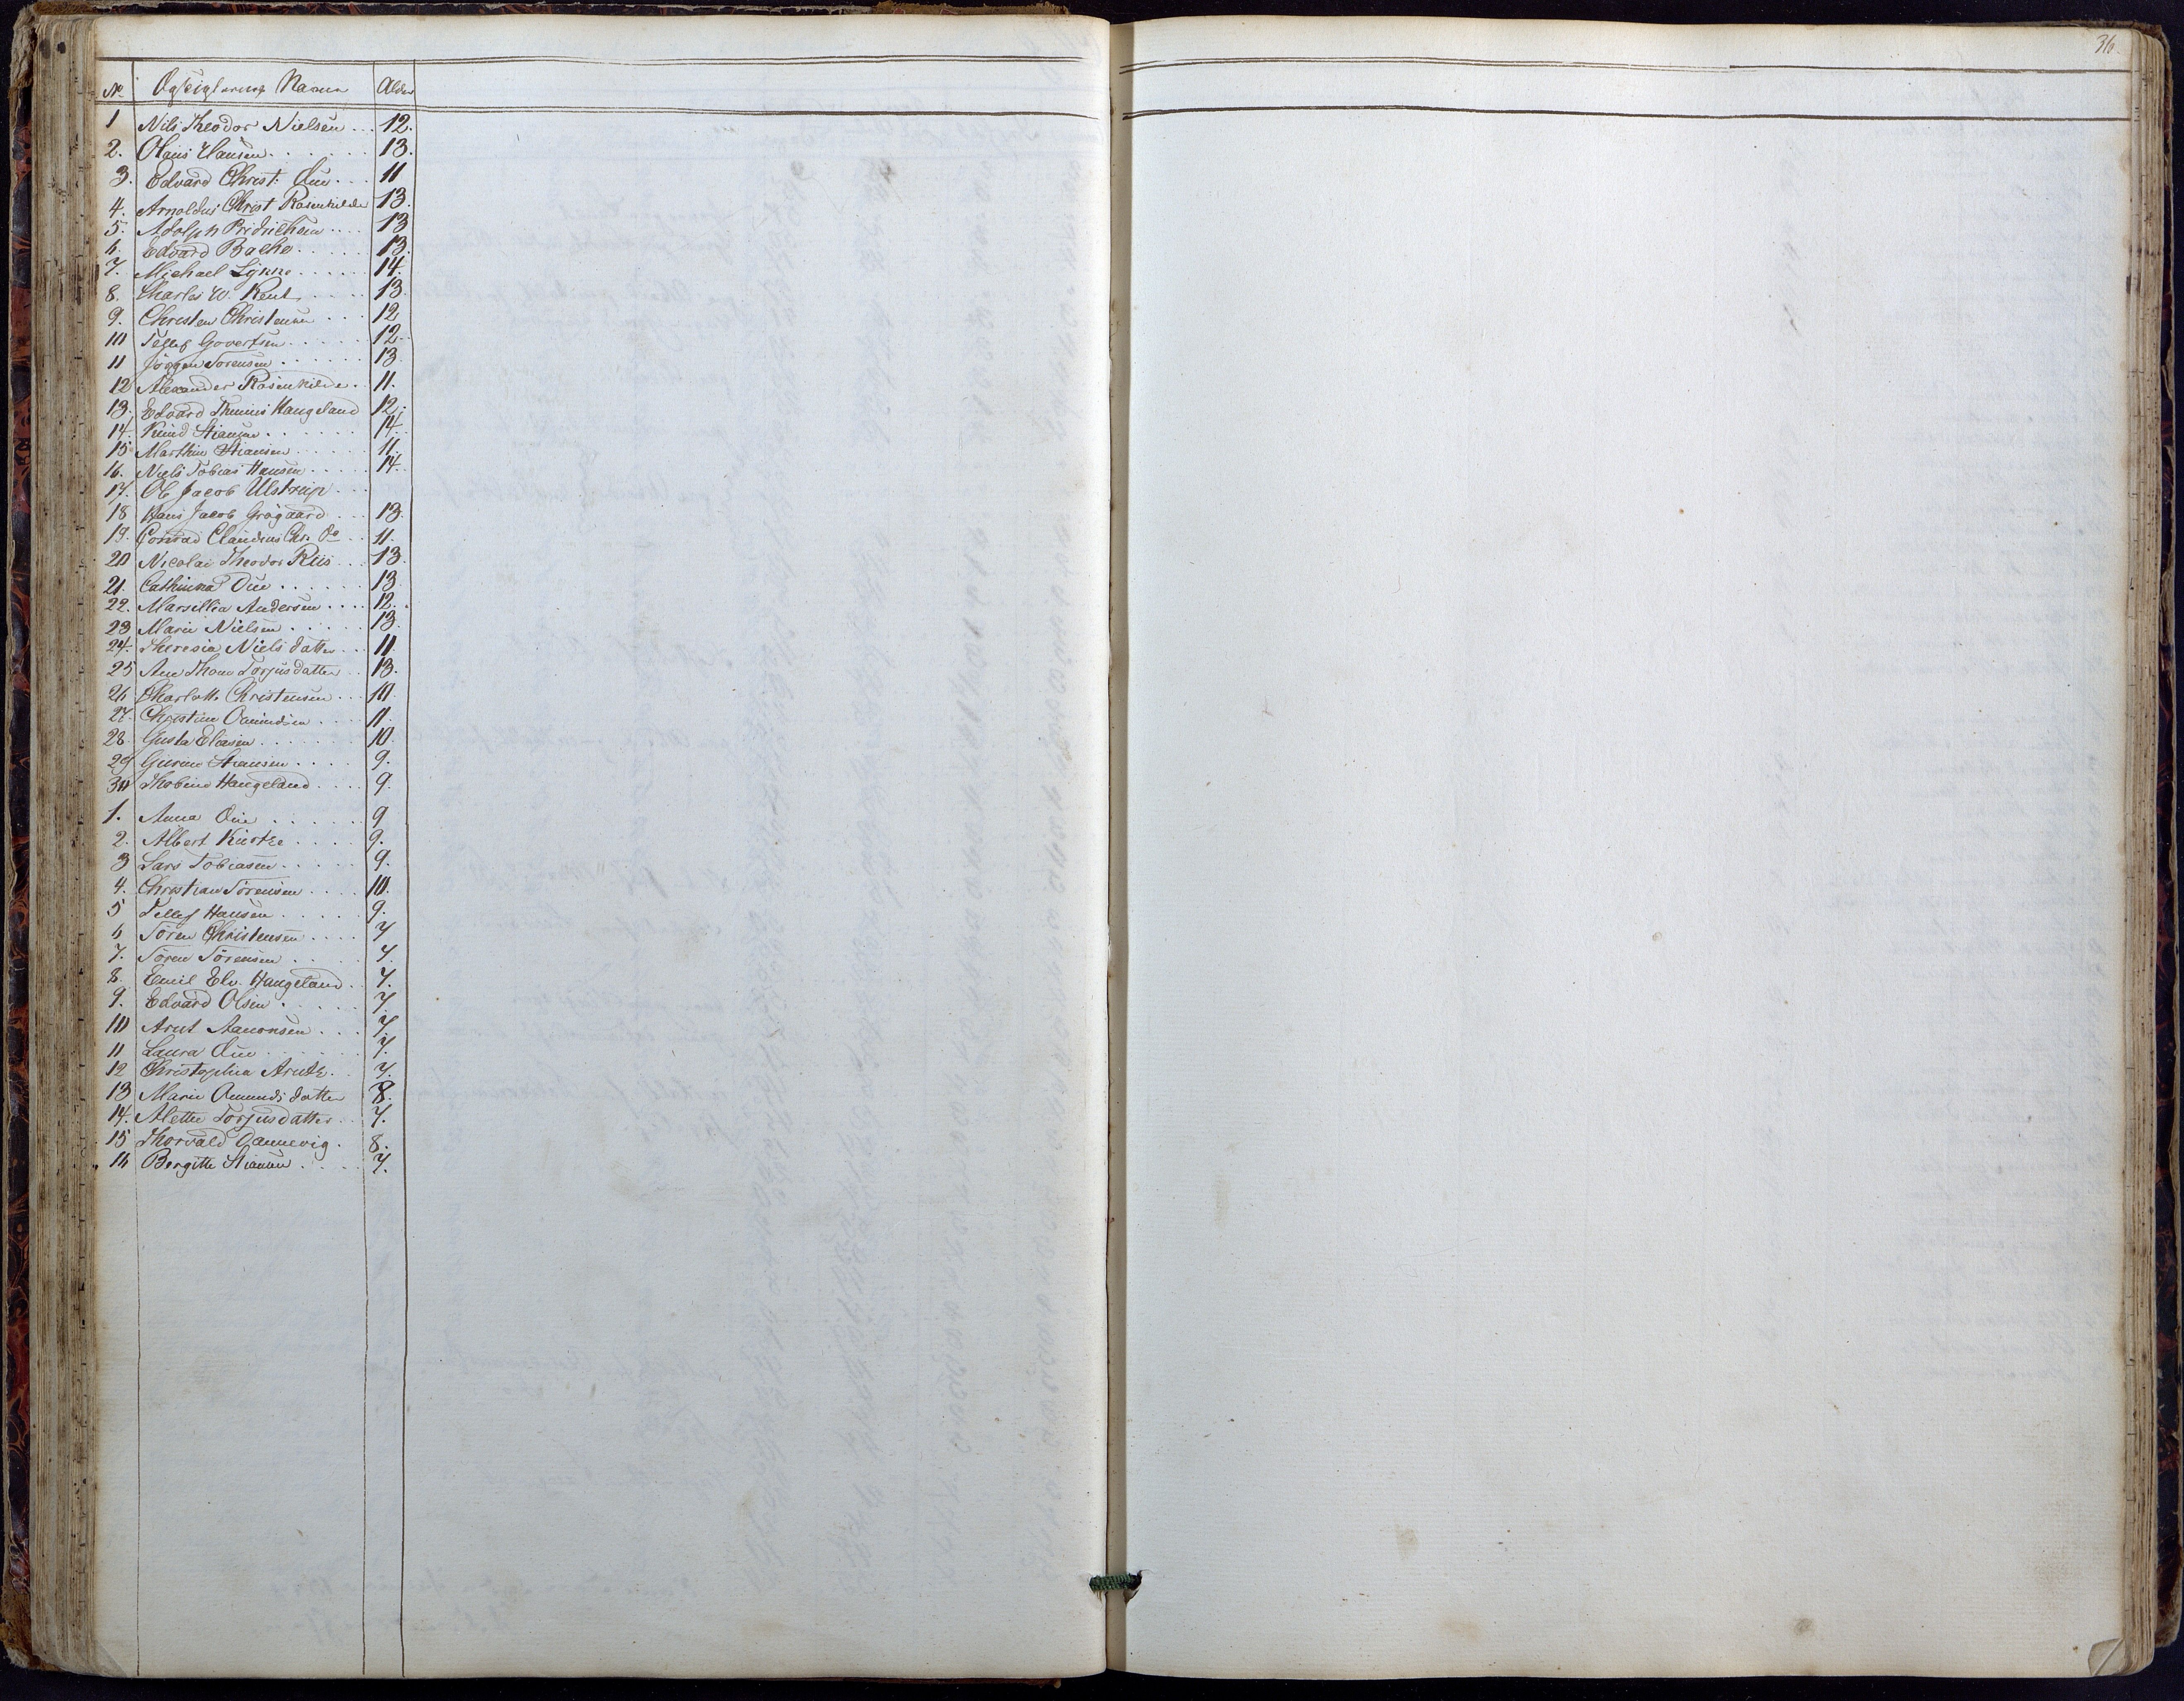 36.
No Navne Alder
1 Nils Theodor Nielsen 12.
2. Olaus Hansen 13.
3. Edvard Christ. Due 11
4. Arnoldus Christ Rosenkilde 13.
5. Adolph 13
6. Edvard Bache 13.
7. Michael Lynne 14.
8. Charles W. Kent 13.
9. Christen Christensen 12
10 Tellef Govertsen 12
11 Jørgen Sørensen 13
12 Alexander Rosenkilde 11.
13. Edvard Haugeland 12.
14. Knud Stiansen 14.
15 Marthin Stiansen 11.
16. Niels Tobias Hansen 14.
17. Ole Jacob Ulstrup
18 Hans Jacob Grøgaard 13.
19. Conrad Claudius Chr. do 11.
20 Nicolai Theodor Riis 13
21. Cathinka Due 13
22. Marsillia Andersen 12.
23 Marie Nielsen 13.
24. Theresia Nielsdatter 11.
25 Ane Thom Torjusdatter 13.
26. Charlotte Christensen 10.
27. Christine Omundsen 11.
28. Gusta Eliasen 10.
29 Gurine Stiansen 9.
30 Thobine Haugeland 9.
1. Anna Due 9
2. Albert Kürtze 9.
3 Lars Tobiasen 9.
4. Christian Sørensen 10.
5 Tellef Hansen 9.
6 Søren Christensen 7
7. Søren Sørensen 7.
8. Emil Elv. Haugeland 7.
9. Edvard Olsen 7
10 Arnt Aanonsen 7
11 Laura Due 7.
12 Christophia Arntz 7.
13 Marie Omundsdatter 8.
14. Alette Torjusdatter 7.
15 Thorvald Dannevig 8.
16 Bergitte Stiansen 7.